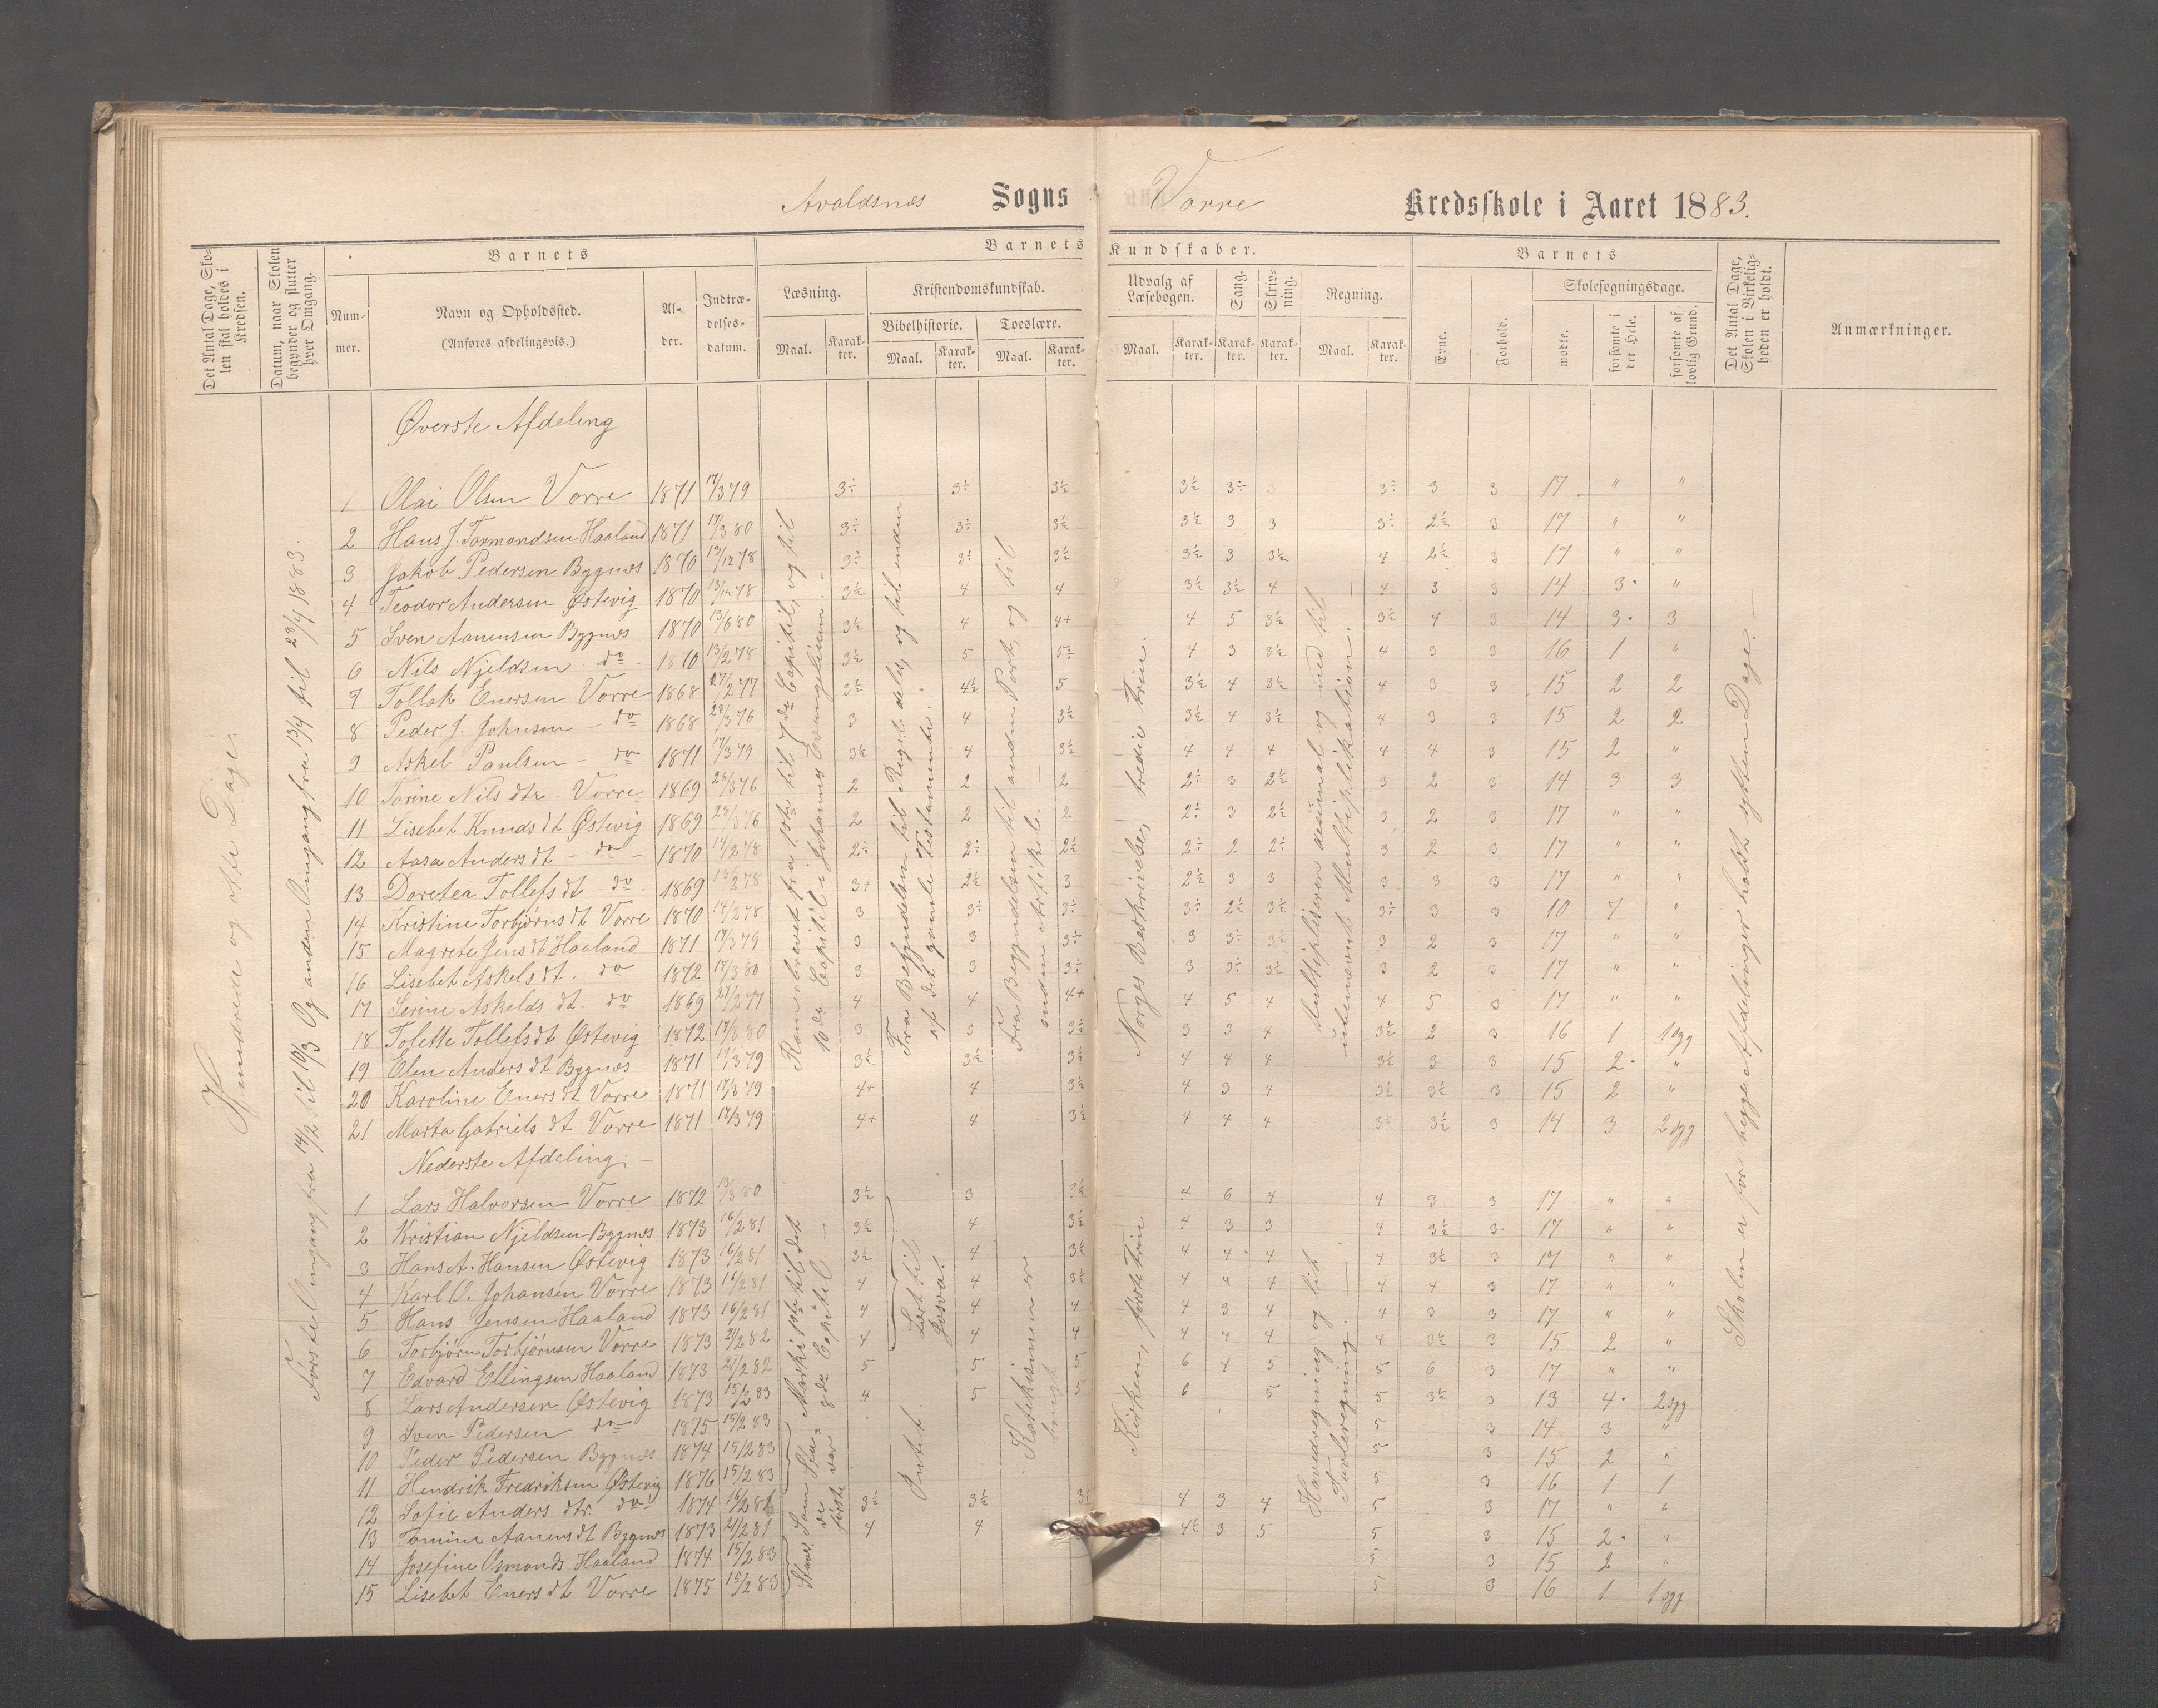 Avaldsnes Sogns Vorre Kredsskole i Aaret 1883.
Det Antal Dage, Skolen skal holdes i Kredsen.
Datum, naar Skolen begynder og slutter hver Omgang.
Barnets
Nummer.
Navn og Opholdssted.
(Anføres afdelingsvis.)
Alder.
Indtrædelsesdatum.
Barnets Kundskaber.
Læsning.
Maal.
Karakter.
Kristendomskundskab.
Bibelhistorie.
Maal.
Karakter.
Troeslære.
Maal.
Karakter.
Udvalg af Læsebogen.
Maal.
Karakter.
Sang.
Karakter.
Skrivning.
Karakter.
Regning.
Maal.
Karakter.
Barnets
Evne.
Forhold.
Skolesøgningsdage.
mødte.
forsømte i det Hele.
forsømte af lovlig Grund.
Det Antal Dage, Skolen i Virkeligheden er holdt.
Anmærkninger.
Hundrede og otte Dage.
Første Omgang fra 14/2 til 10/3 Og anden Omgang fra 13/4 til 28/4 1883.
Øverste Afdeling
1 Olai Olsen Vorre 1871 17/3 79 3÷ 3÷ 3½ 3½ 3÷ 3 3÷ 3 3 17 " "
2 Hans J. Tormondsen Haaland 1871 17/3 80 3÷ 3÷ 3½ 3½ 3 3 3÷ 2½ 3 17 " "
3 Jakob Pedersen Bygnes 1870 13/12 78 3÷ 3÷ 3½ 3½ 3 3½ 4 2½ 3 17 " "
4 Teodor Andersen Østevig 1870 13/12 78 3½ 4 4 3½ 3½ 4 4 3 3 14 3 "
5 Sven Aanensen Bygnes 1870 13/6 80 3½ 4 4+ 4 5 3½ 3½ 4 3 14 3 3
6 Nils Njeldsen do 1870 13/2 78 3½ 5 5÷ 4 3 3½ 4 3 3 16 1 "
7 Tollak Enersen Vorre 1868 27/2 77 3½ 4½ 5 3½ 4 3½ 4 3 3 15 2 2
8 Peder J. Johnsen do 1868 28/3 76 3 4 3½ 3½ 4 3½ 4 3 3 15 2 2
9 Askel Paulsen do 1871 17/3 79 3½ 4 3½ 4 4 4 4 4 3 15 2 "
10 Torine Nils dtr Vorre 1869 28/3 76 2 2 2 2÷ 3 2½ 3 2 3 14 3 3
11 Lisebet Knuds dt Østevig 1869 28/3 76 2 2 2 2÷ 3 2½ 3 2 3 17 " "
12 Aasa Anders dt do 1870 14/2 78 2÷ 2÷ 2½ 2÷ 2 2÷ 3 2 3 17 " "
13 Doretea Tollefs dt do 1869 13/2 78 3+ 2½ 3 2½ 3 3 3 3 3 17 " "
14 Kristine Torbjørns dt Vorre 1870 14/2 78 3 3÷ 3÷ 3÷ 2½ 3½ 3÷ 3 3 10 7 "
15 Magrete Jens dt Haaland 1871 17/3 79 3 3 3÷ 3 3÷ 3½ 3 2 3 17 " "
16 Lisebet Askels dt. do 1872 17/3 80 3 3 3÷ 3 3÷ 3½ 3 2 3 17 " "
17 Serine Askelds dt. do 1869 27/2 77 4 4 4+ 4 5 4 4 5 3 17 " "
18 Tolette Tollefs dt Østevig 1872 17/3 80 3 3 3½ 3 3 4 3½ 2 3 16 1 1 syg
19 Elen Anders dt Bygnes 1871 17/3 79 3½ 3½ 3½ 4 4 4 3½ 3 3 15 2 "
20 Karoline Eners dt Vorre 1871 17/3 79 4+ 4 3½ 4 3 4 3½ 3½ 3 15 2 "
21 Marta Gabriels dt Vorre 1871 17/3 79 4+ 4 3½ 4 4 4 3½ 3½ 3 14 3 2 syg
Romerbrevet fra 1ste til 7de Capitel, og til 10de Capitel i Johannes Evangelium.
Fra Begyndelsen til Rigets deles, og til enden af det gamle Testamente.
Fra Begyndelsen til anden Part, og til anden Artikel.
Norges Beskrivelse, tredie Trin.
Multiplisere desimal og med til ubenævnt Multiplikation.
Skolen er for begge Afdelinger holdt sytten Dage.
Nederste Afdeling.
1 Lars Halvorsen Vorre 1872 13/3 80 3½ 3 3½ 4 6 4 4 3 3 17 " "
2 Kristian Njeldsen Bygnes 1873 16/2 81 3½ 4 3½ 4 3 3 4 3½ 3 17 " "
3 Hans A. Hansen Østevig 1873 16/2 81 3½ 4 3½ 4 4 4 4 3½ 3 17 " "
4 Karl O. Johansen Vorre 1873 16/2 81 4 4 3½ 4 4 4 4 4 3 17 " "
5 Hans Jensen Haaland 1873 16/2 81 4 4 4 4 3 4 4 3 3 17 " "
6 Torbjørn Torbjørnsen Vorre 1873 21/2 82 4 4 4 4 4 4 4 3½ 3 15 2 "
7 Edvard Ellingsen Haaland 1873 21/2 82 5 5 5 6 4 5 5 6 3 17 " "
8 Lars Andersen Østevig 1873 15/2 83 4 5 5 6 5 5 3½ 3 13 4 2 syg
9 Sven Pedersen do 1875 15/2 83 5 3 14 3 "
10 Peder Pedersen Bygnes 1874 15/2 83 5 3 15 2 "
11 Hendrik Fredriksen Østevig 1876 15/2 83 5 3 16 1 1
12 Sofie Anders dtr. do 1874 16/2 81 3½ 3½ 3½ 4 3 4 5 3 17 " "
13 Tomine Aanens dt Bygnes 1873 21/2 81 4 4 4½ 3 5 5 3 15 2 "
14 Josefine Osmonds Haaland 1874 15/2 83 5 3 15 2 "
15 Lisebet Eners dt Vorre 1875 15/2 83 5 3 16 1 1 syg
Marki 1ste til det 8de Capitel
Lært til Josva.
Katekismen er
Kirken, første Trin
Hovedregning og lidt Tavleregning.